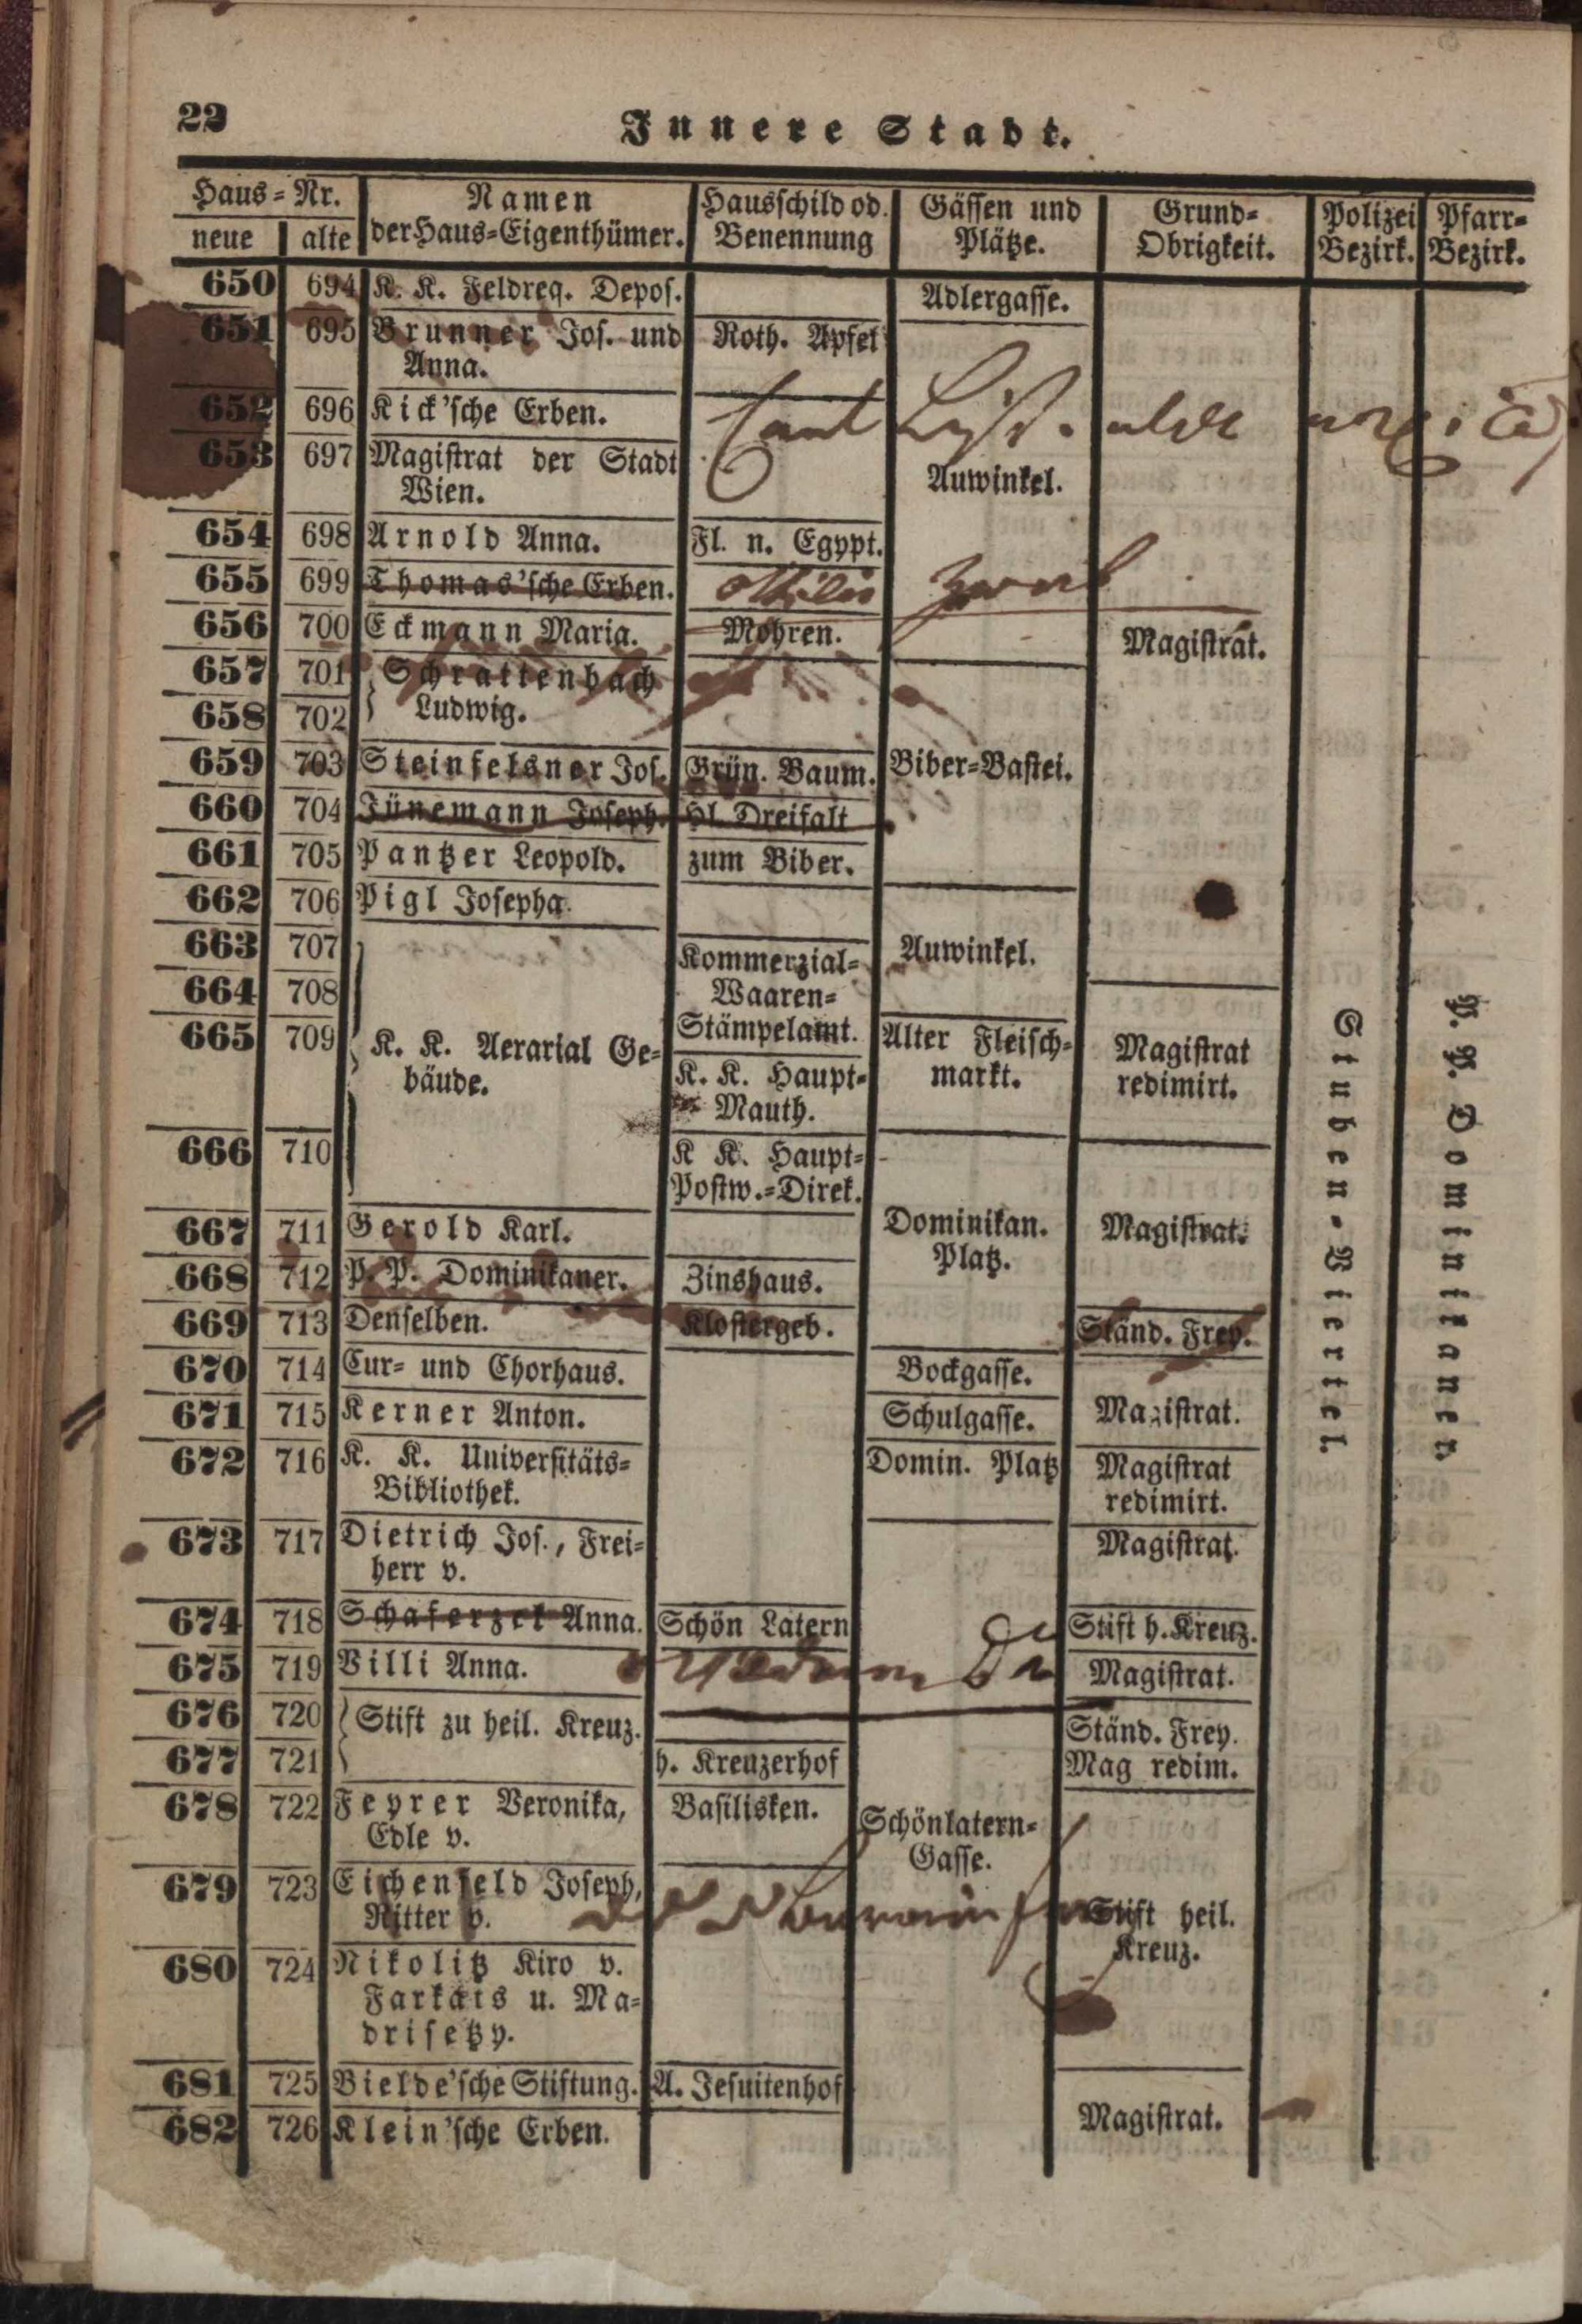 22
Innere Stadt.
Haus-Nr. | Namen | Hausschild od. | Gässen und | Grund- | Polizei | Pfarr-
neue | alte | der Haus-Eigenthümer. | Benennung | Plätze. | Obrigkeit. | Bezirk. | Bezirk.
650 694 K. K. Feldreq. Depos. Adlergasse.
651 695 Brunner Jos. und Roth. Apfel
Anna.
652 696 Kick'sche Erben.
653 697 Magistrat der Stadt Auwinkel.
Wien.
654 698 Arnold Anna. Fl. n. Egypt.
655 699 Thomas'sche Erben.
656 700 Eckmann Maria. Mohren. Magistrat.
657 701 Schrattenbach
658 702 Ludwig.
659 703 Steinfelsner Jos. Grün. Baum. Biber-Bastei.
660 704 Jünemann Joseph. Hl. Dreifalt
661 705 Pantzer Leopold. zum Biber.
662 706 Pigl Josepha.
663 707 Kommerzial- Auwinkel.
664 708 Waaren-
665 709 K. K. Aerarial Ge- Stämpelamt. Alter Fleisch- Magistrat
bäude. K. K. Haupt- markt. redimirt.
Mauth.
666 710 K K. Haupt-
Postw.-Direk.
667 711 Gerold Karl. Dominikan. Magistrat.
Platz.
668 712 P. P. Dominikaner. Zinshaus.
669 713 Denselben. Klostergeb. Ständ. Frey.
670 714 Cur- und Chorhaus. Bockgasse.
671 715 Kerner Anton. Schulgasse. Magistrat.
672 716 K. K. Universitäts- Domin. Platz Magistrat
Bibliothek. redimirt.
673 717 Dietrich Jos., Frei- Magistrat.
herr v.
674 718 Schaferzek Anna. Schön Latern Stift h. Kreuz.
675 719 Villi Anna. Magistrat.
676 720 Stift zu heil. Kreuz. Ständ. Frey.
677 721 h. Kreuzerhof Mag redim.
678 722 Feyrer Veronika, Basilisken. Schönlatern-
Edle v. Gasse.
679 723 Eichenfeld Joseph,
Ritter v. Stift heil.
Kreuz.
680 724 Nikolitz Kiro v.
Farkais u. Ma-
drisetzy.
681 725 Bielde'sche Stiftung. A. Jesuitenhof
682 726 Klein'sche Erben. Magistrat.
Stuben-Viertel
P. P. Dominikaner